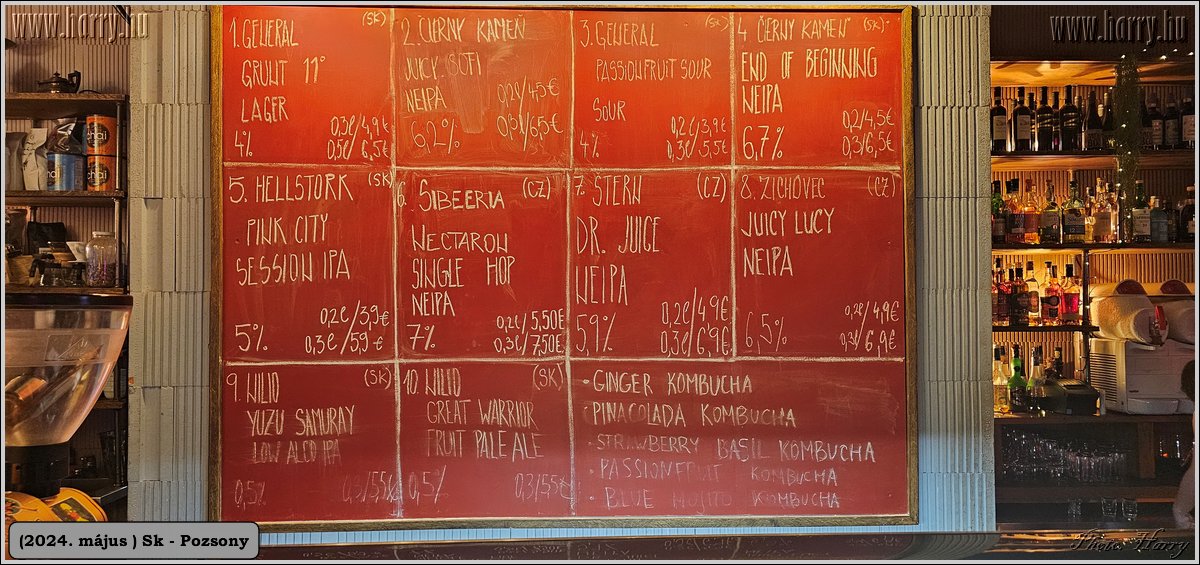 www.horry.hu
www.horry.hu
1. GENERAL (SK)
GRUNT 11°
LAGER
4% 0,3ℓ/4,9€
0,5ℓ/6,5€
2. ČIERNY KAMEŇ
JUICY SOFI
NEIPA 0,2ℓ/4,5€
6,2% 0,3ℓ/6,5€
3. GENERAL (SK)
PASSIONFRUIT SOUR
SOUR
4% 0,2ℓ/3,9€
0,3ℓ/5,5€
4 ČIERNY KAMEŇ (SK)
END OF BEGINNING
NEIPA
6,7% 0,2/4,5€
0,3/6,5€
5. HELLSTORK (SK)
PINK CITY
SESSION IPA
0,2ℓ/3,9€
5% 0,3ℓ/5,9€
6. SIBEERIA (CZ)
NECTARON
SINGLE HOP
NEIPA
7% 0,2ℓ/5,50€
0,3ℓ/7,50€
7. STERN (CZ)
DR. JUICE
NEIPA
5,9% 0,2ℓ/4,9€
0,3ℓ/6,9€
8. ZICHOVEC (CZ)
JUICY LUCY
NEIPA
6,5% 0,2ℓ/4,9€
0,3ℓ/6,9€
9. WILIO (SK)
YUZU SAMURAY
LOW ALCO IPA
0,5% 0,3/5,5€
10. WILIO (SK)
GREAT WARRIOR
FRUIT PALE ALE
0,5% 0,3/5,5€
• GINGER KOMBUCHA
• PINACOLADA KOMBUCHA
• STRAWBERRY BASIL KOMBUCHA
• PASSIONFRUIT KOMBUCHA
• BLUE MOJITO KOMBUCHA
(2024. május ) Sk - Pozsony
Photo: Horry